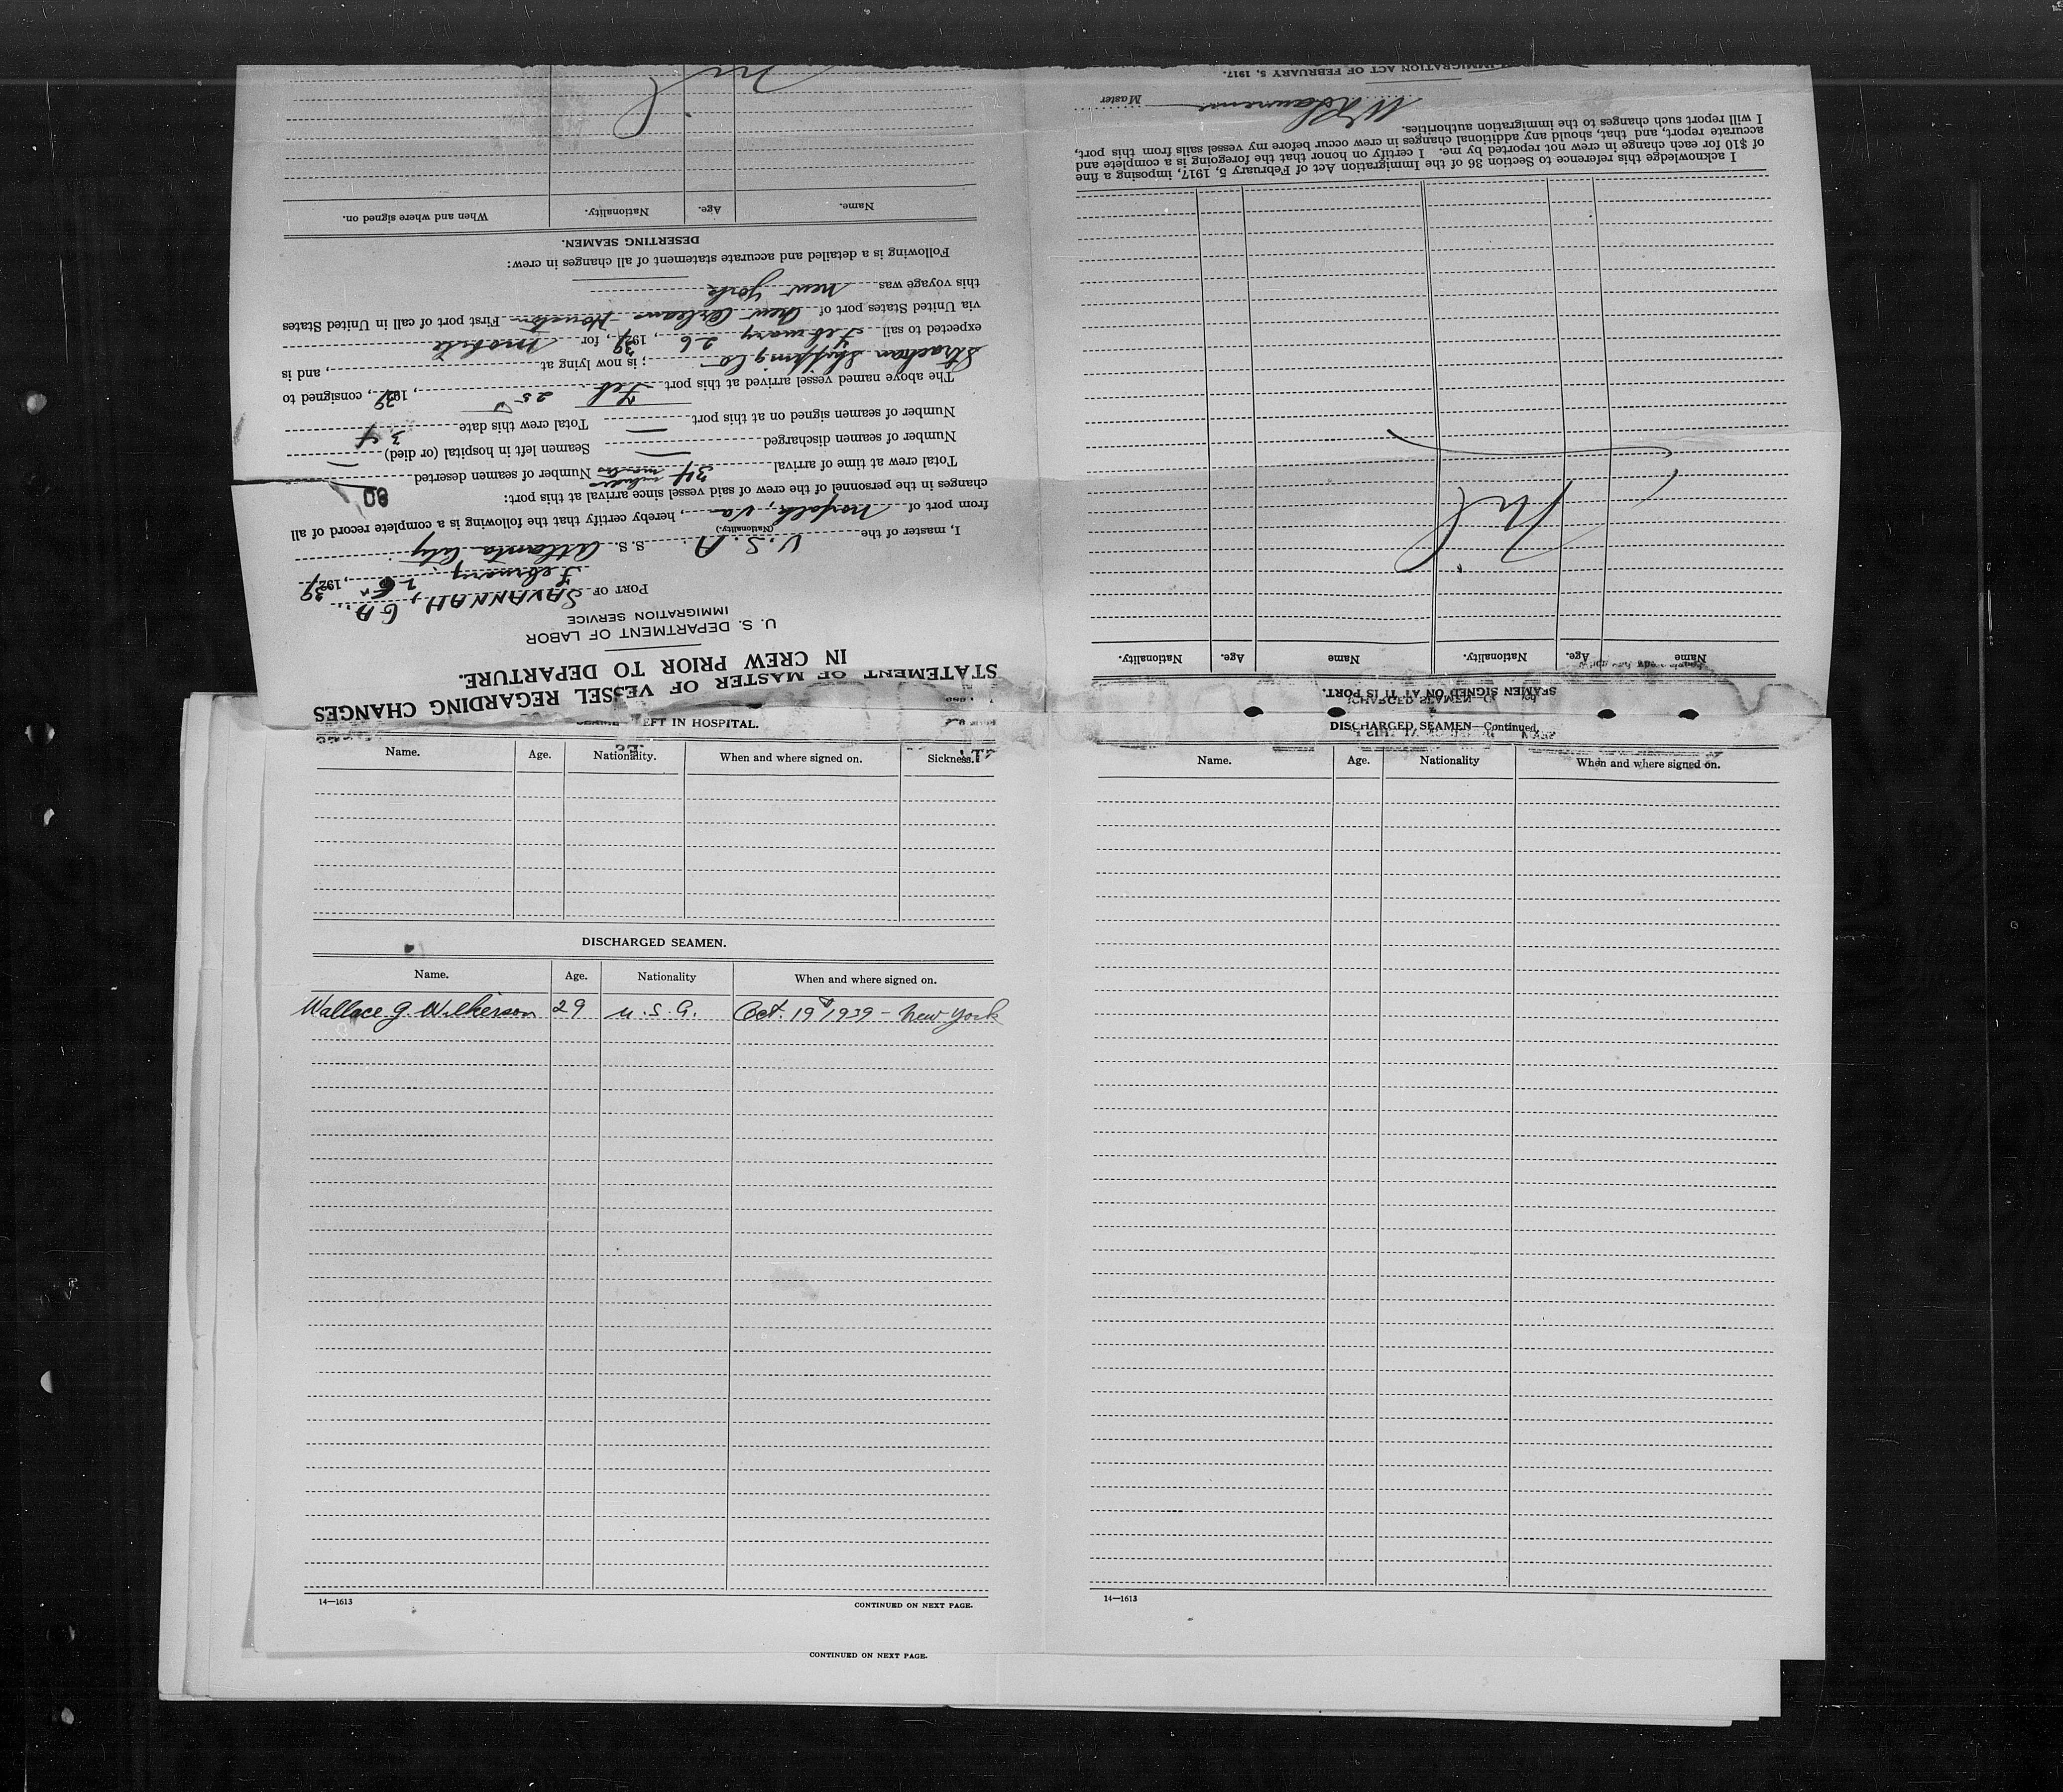 STATEMENT OF MASTER OF VESSEL REGARDING CHANGES
IN CREW PRIOR TO DEPARTURE.
U. S. DEPARTMENT OF LABOR
IMMIGRATION SERVICE
PORT OF SAVANNAH, GA.,
February 26, 1939
I, master of the U.S.A. S. S. Atlanta City
(Nationality.)
from port of Norfolk, Va, hereby certify that the following is a complete record of all
changes in the personnel of the crew of said vessel since arrival at this port:
80
Total crew at time of arrival 34 Number of seamen deserted —
Number of seamen discharged — Seamen left in hospital (or died)
Number of seamen signed on at this port — Total crew this date 34
The above named vessel arrived at this port Feb. 25, 1939, consigned to
Strachan Shipping Co; is now lying at , and is
expected to sail February 26, 1939, for Mobile
via United States port of New Orleans Houston First port of call in United States
this voyage was New York
Following is a detailed and accurate statement of all changes in crew:
DESERTING SEAMEN.
Name. Age. Nationality. When and where signed on.
Nil
SEAMEN SIGNED ON AT THIS PORT.
Name Age. Nationality. Name Age. Nationality.
Nil
I acknowledge this reference to Section 36 of the Immigration Act of February 5, 1917, imposing a fine
of $10 for each change in crew not reported by me. I certify on honor that the foregoing is a complete and
accurate report, and that, should any additional changes in crew occur before my vessel sails from this port,
I will report such changes to the immigration authorities.
Master
IMMIGRATION ACT OF FEBRUARY 5, 1917.
LEFT IN HOSPITAL.
Name. Age. Nationality. When and where signed on. Sickness.
DISCHARGED SEAMEN.
Name. Age. Nationality When and where signed on.
Wallace G. Wilkerson 29 U.S.A. Oct. 19 1939 - New York
14—1613 CONTINUED ON NEXT PAGE.
CONTINUED ON NEXT PAGE.
DISCHARGED SEAMEN—Continued.
Name. Age. Nationality When and where signed on.
14—1613